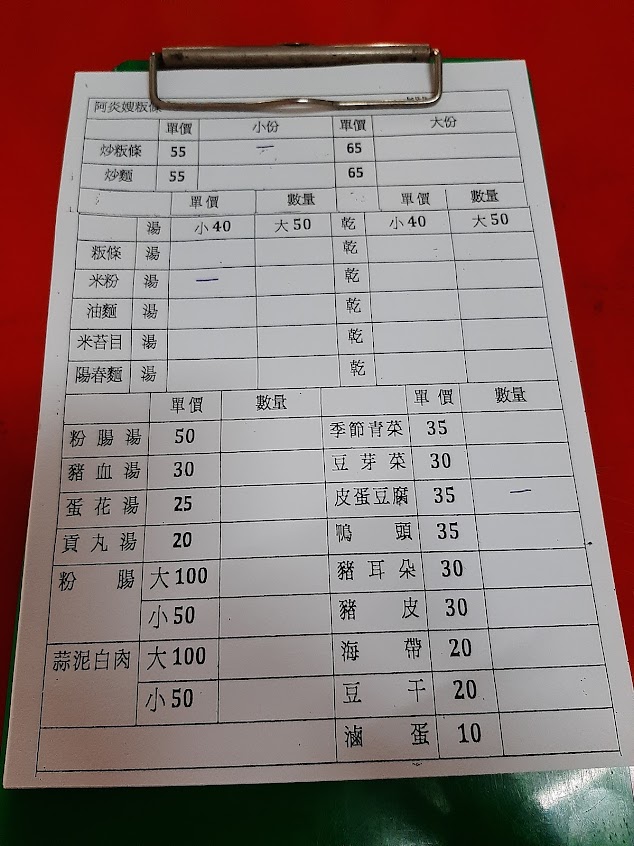 阿炎嫂粄條
單價 小份 單價 大份
炒粄條 55 一 65
炒麵 55 65
單價 數量 單價 數量
湯 小40 大50 乾 小40 大50
粄條 湯 乾
米粉 湯 一 乾
油麵 湯 乾
米苔目 湯 乾
陽春麵 湯 乾
單價 數量 單價 數量
粉腸湯 50 季節青菜 35
豬血湯 30 豆芽菜 30
蛋花湯 25 皮蛋豆腐 35 一
貢丸湯 20 鴨頭 35
粉腸 大100 豬耳朵 30
小50 豬皮 30
蒜泥白肉 大100 海帶 20
小50 豆干 20
滷蛋 10